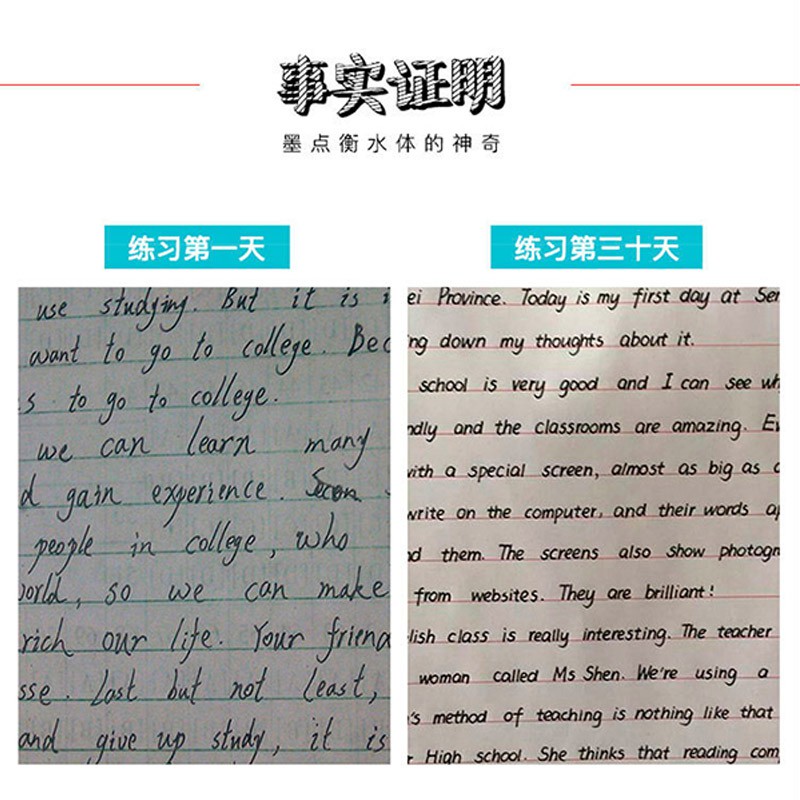 事实证明
墨点衡水体的神奇
练习第一天
use studying. But it is
want to go to college. Bec
s to go to college.
we can learn many
d gain experience.
people in college, who
orld, so we can make
rich our life. Your friend
sse. Last but not least,
and give up study, it is
练习第三十天
ei Province. Today is my first day at Sen
ng down my thoughts about it.
school is very good and I can see wh
ndly and the classrooms are amazing. Ev
with a special screen, almost as big as
write on the computer, and their words ap
nd them. The screens also show photogr
from websites. They are brilliant!
lish class is really interesting. The teacher
woman called Ms Shen. We're using a
's method of teaching is nothing like that
r High school. She thinks that reading com